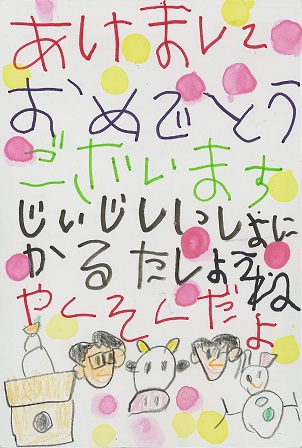 あけまして
おめでとう
ございます
じいじいっしょに
かるたしようね
やくそくだよ